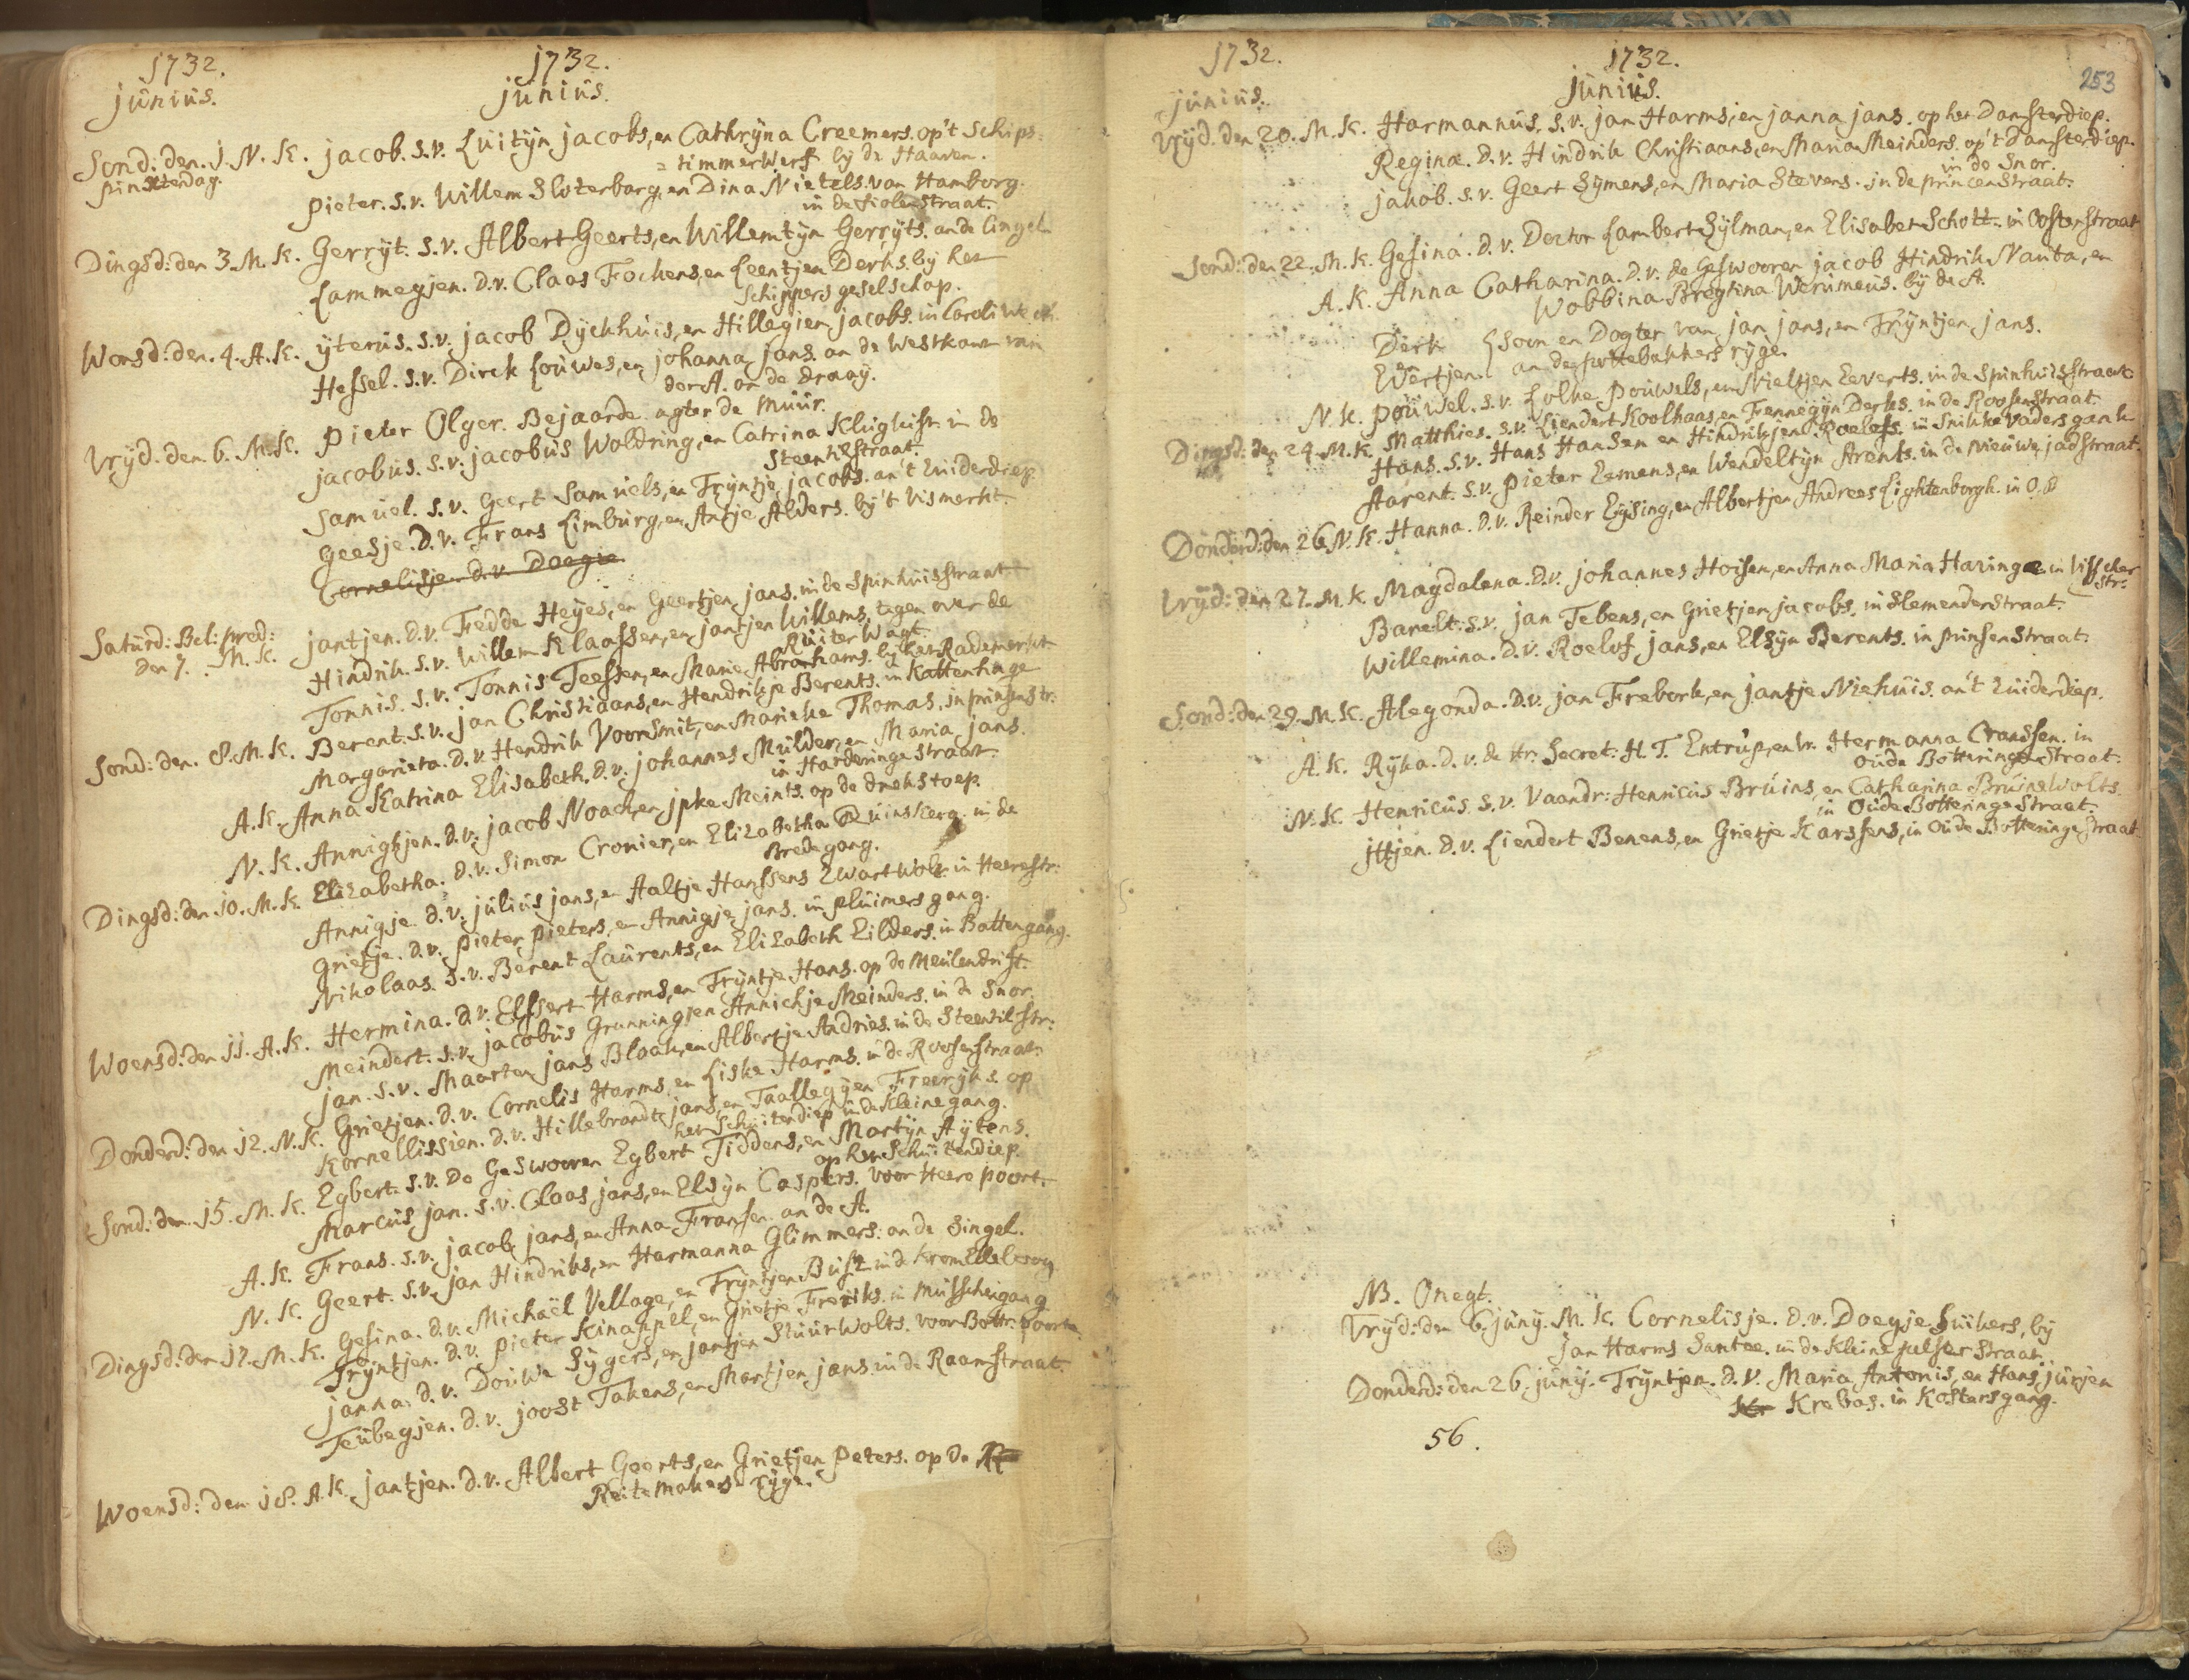 1732.
1732.
junius.
junius.
Sond: den. 1. N. K. jacob. s.v. Luitijn jacobs, en Cathrijna Creemers. op't schips=
pinxterdag.
= timmerwerf bij de Haaven.
pieter. s.v. Willem Sloterbarg, en Dina Nietels. van Hamborg.
in de fiolenstraat.
Dingsd: den 3. M. K. Gerrijt. s.v. Albert Geerts, en Willemtijn Gerrijts. an de Cingel.
Lammegjen. d.v. Claas Fockens, en Leentjen Derks. bij het
Schippers geselschap.
Wonsd: den. 4. A. K. ijterus. s.v. jacob Dijckhuis, en Hillegien jacobs. in
Hessel. s.v. Dirck Louwes, en johanna jans. an de westkant van
der A. an de draaij.
Vrijd. den. 6. M. K. pieter Olger. Bejaarde. agter de muur.
jacobus. s.v. jacobus Woldring, en Catrina in de
Steentilstraat.
Samuel. s.v. Geert Samuels, en Trijntje jacobs. an't Zuiderdiep
Geesje. d.v. Frans Limburg, en Antje Alders. bij't Vismerkt.
Cornelisje. d.v. Doegie
Saturd: Bel: pred: jantjen. d.v. Fedde Heijes, en Geertjen jans. in de Spinhuisstraat.
den 7. M. K. Hindrik. s.v. Willem Klaassen, en jantjen Willems, tegen over de
Ruiter Wagt.
Tonnis. s.v. Tonnis Teessen, en Marie Abrahams. bij het Rademerkt
Sond: den. 8. M. K. Berent. s.v. jan Christiaans, en Hendrikje Berents. in Kattenhage
Margarieta. d.v. Hendrik Voorsmit, en Marieke Thomas. in prinsenstr:
A. K. Anna Katrina Elisabeth. d.v. johannes Mulder, en Maria jans.
in Harderinge straat.
N. K. Annighjen. d.v. jacob Noach, en jpke Meints. op de drekstoep.
Dingsd: den 10. M. K. Elizabetha. d.v. Simon Cronier, en Elizabetha Ruinskerg. in de
Bredegang.
Annigje. d.v. julius jans, en Aaltje Hanssens Zwartwolt. in Heerestr:
Grietje. d.v. pieter pieters, en Annigje jans. in pluimersgang.
Nikolaas. s.v. Berent Laurents, en Elizabeth Eilders. in Battengang.
Woensd: den 11. A. K. Hermina. d.v. Elssert Harms, en Trijntje Hans. op de Meulendrift.
Meindert. s.v. jacobus Grunning, en Annichje Meinders. in de Snor.
jan. s.v. Maarten jans Blaak, en Albertje Andries. in de Steentilstr:
Donderd: den 12. N. K. Grietjen. d.v. Cornelis Harms, en Liske Harms. in de Roosenstraat.
Kornellissien. d.v. Hillebrandt jans, en Taallegijen Freerijks. op
het Schuitendiep in de Kleine gang.
Sond: den 15. M. K. Egbert. s.v. De Geswooren Egbert Tiddens, en Martijn Aijtens.
op het Schuitendiep.
Marcus jan. s.v. Claas jans, en Elsijn Caspers. voor Heere poort.
A. K. Frans. s.v. jacob jans, en Anna Fransen. an de A.
N. K. Geert. s.v. jan Hindriks, en Harmanna Glimmers. an de Singel.
Dingsd: den 17. M. K. Gesina. d.v. Michaël Vellage, en Trijntjen in de Krom Elleboog
Trijntjen. d.v. pieter Kinappel, en Grietje Freriks. in Musschengang
janna. d.v. Douwe Sijgers, en jantjen Stuurwolts. voor Bottr: poorte.
Teubegjen. d.v. joost Takens, en Martjen jans. in de Raamstraat.
Woensd: den 18. A. K. jantjen. d.v. Albert Geerts, en Grietjen peters. op de
Reitemakers rijge.
1732.
1732.
253
junius.
junius.
Vrijd. den 20. M. K. Harmannus. s.v. jan Harms, en janna jans. op het Damsterdiep.
Regina. d.v. Hindrik Christiaans, en Maria Meinders. op't Damsterdiep.
in de Snor.
jakob. s.v. Geert Sijmens, en Maria Stevens. in de princenstraat.
Sond: den 22. M. K. Gesina. d.v. Doctor Lambert Sijlman, en Elisabet Schott. in Oosterstraat
A. K. Anna Catharina. d.v. de Geswooren jacob Hindrik Nauta, en
Wobbina Bregtina Werumeus. bij de A.
Derk } Soon en Dogter van jan jans, en Trijntjen jans.
Wertjen. an de pottebakkers rijge.
N. K. pouwel. s.v. Lolke Pouwels, en Nieltjen Eeverts. in de Spinhuisstraat.
Dingsd: den 24. M. K. Matthies. s.v. Liendert Koolhaas, en Fennegijn Derks. in de Roosenstraat
Hans. s.v. Hans Hansen en Hindrikjen Roelefs. in Snikkevaders gank
Aarent. s.v. pieter Eemens, en Wendeltijn Arents. in de Nieuwe jadstraat.
Donderd: den 26. N. K. Hanna. d.v. Reinder Eijsing, en Albertjen Andrees Lightenborgh. in O. B
Vrijd: den 27. M. K. Magdalena. d.v. johannes Hoisen, en Anna Maria Haringe in Visscher
str:
Barelt. s.v. jan Tebens, en Grietjen jacobs. in Slemenderstraat.
Willemina. d.v. Roelof jans, en Elsijn Berents. in prinsenstraat.
Sond: den 29. M. K. Alegonda. d.v. jan Frebork, en jantje Niehuis. an't Zuiderdiep.
A. K. Rijka. d.v. de Hr. Secret: H. T. Entrup, en Vr. Hermanna Cranssen. in
oude Botteringe Straat.
N. K. Henricus. s.v. Vaandr: Henricus Bruins, en Catharina Bruinswolts.
in Oude Botteringe Straat.
jttjen. d.v. Liendert Benens, en Grietje Karssens, in Oude Botteringe Straat
NB. Onegt.
Vrijd: den 6. junij. M. K. Cornelisje. d.v. Doegje Suikers, bij
Jan Harms Santee. in de Kleine pelster straat.
Donderd: den 26. junij. Trijntjen. d.v. Maria Antonis, en Hans jurjen
Krebas. in Kostersgang.
56.